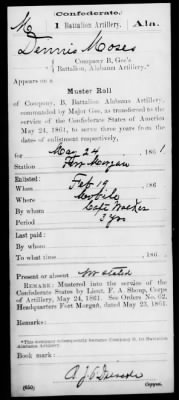 (Confederate.)
M 1 Battalion Artillery. Ala.
Dennis Moses
Company B, Gee's
Battalion, Alabama Artillery.*
Appears on a
Muster Roll
of Company, B, Battalion Alabama Artillery,
commanded by Major Gee, as transferred to the
service of the Confederate States of America
May 24, 1861, to serve three years from the
dates of enlistment respectively,
for May 24, 1861
Station Fort Morgan
Enlisted:
When Feb 19, 186
Where Mobile
By whom Capt
Period 3 yrs
Last paid:
By whom
To what time , 186
Present or absent Not stated
REMARK: Mustered into the service of the
Confederate States by Lieut. F. A. Shoup, Corps
of Artillery, May 24, 1861. See Orders No. 62,
Headquarters Fort Morgan, dated May 23, 1861.
Remarks:
*This company subsequently became Company B, 1st Battalion
Alabama Artillery.
Book mark:
(650) Copyist.